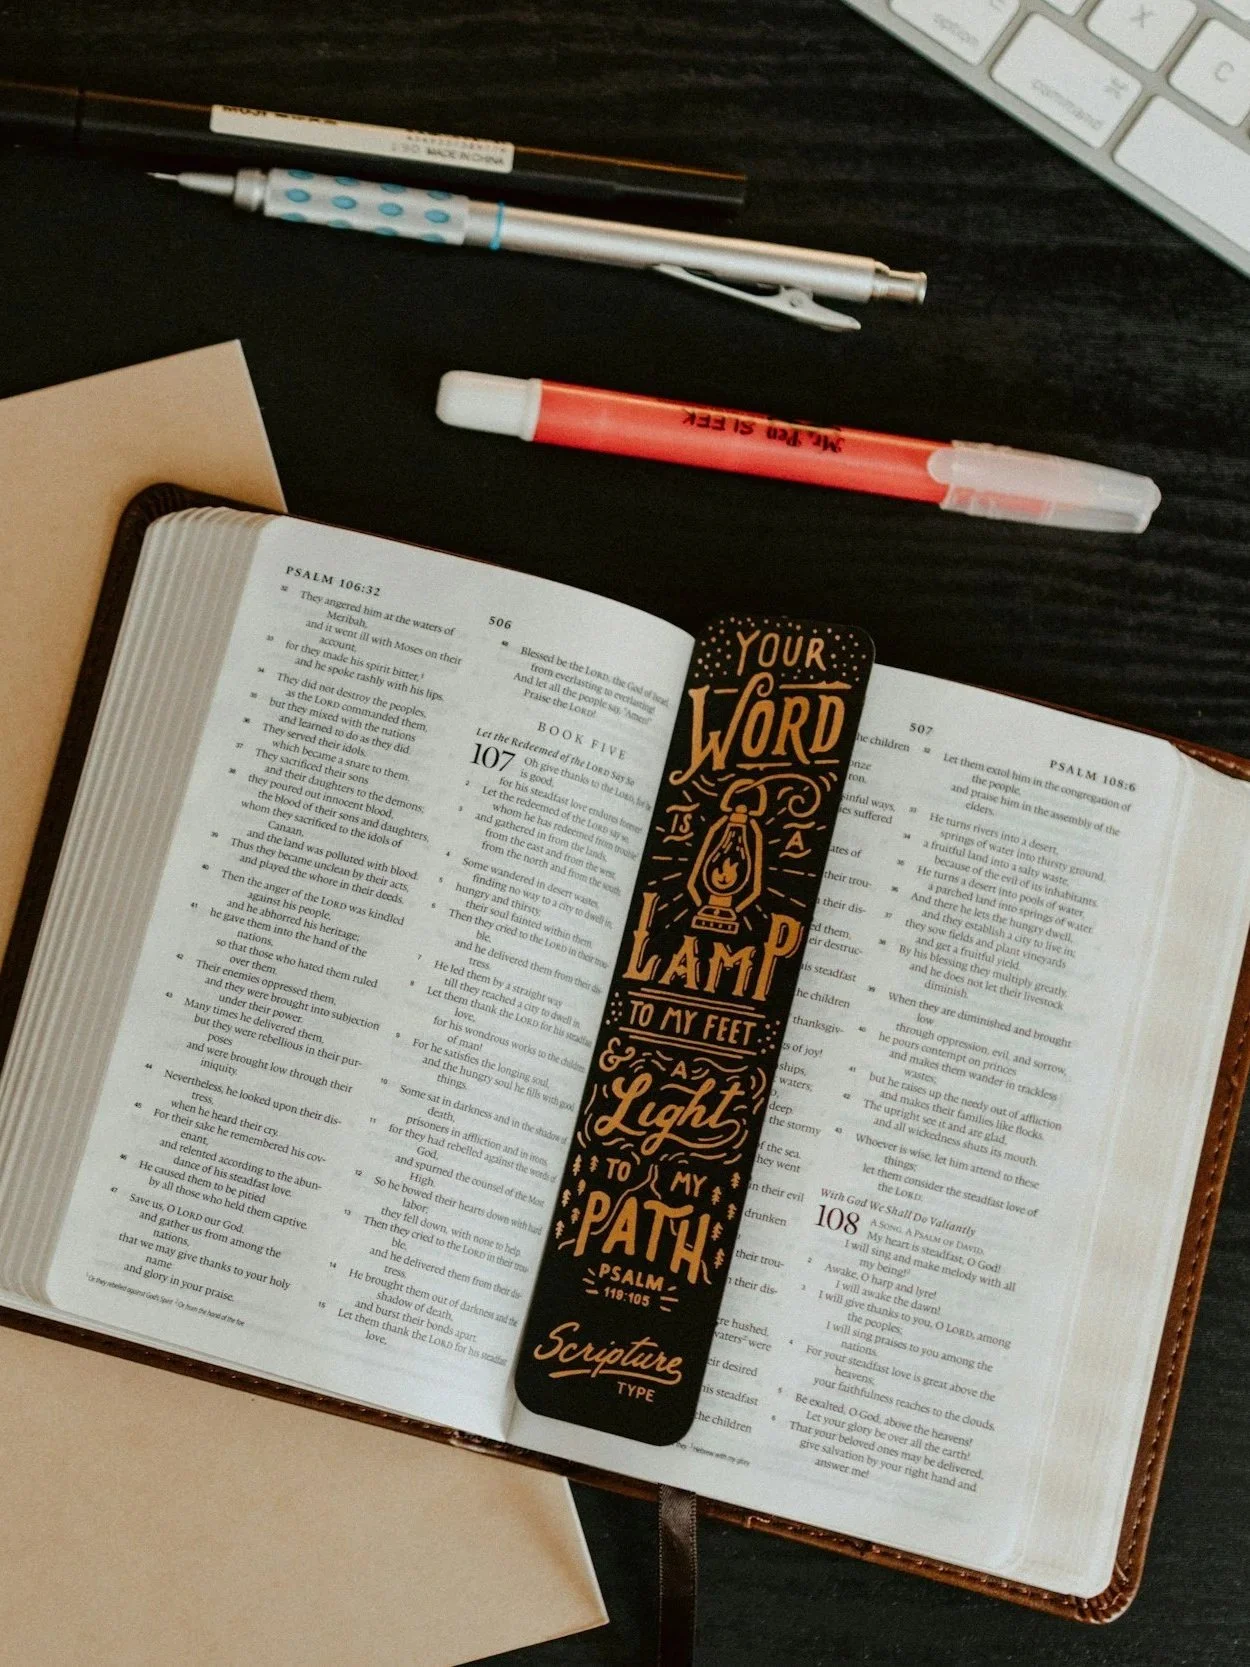 option
X
C
⌘
command
MADE IN CHINA
Mr. Pen SLEEK
PSALM 106:32
506
32 They angered him at the waters of
Meribah,
and it went ill with Moses on their
account,
33 for they made his spirit bitter,¹
and he spoke rashly with his lips.
34 They did not destroy the peoples,
as the LORD commanded them,
35 but they mixed with the nations
and learned to do as they did.
36 They served their idols,
which became a snare to them.
37 They sacrificed their sons
and their daughters to the demons;
38 they poured out innocent blood,
the blood of their sons and daughters,
whom they sacrificed to the idols of
Canaan,
and the land was polluted with blood.
39 Thus they became unclean by their acts,
and played the whore in their deeds.
40 Then the anger of the LORD was kindled
against his people,
and he abhorred his heritage;
41 he gave them into the hand of the
nations,
so that those who hated them ruled
over them.
42 Their enemies oppressed them,
and they were brought into subjection
under their power.
43 Many times he delivered them,
but they were rebellious in their pur-
poses
and were brought low through their
iniquity.
44 Nevertheless, he looked upon their dis-
tress,
when he heard their cry.
45 For their sake he remembered his cov-
enant,
and relented according to the abun-
dance of his steadfast love.
46 He caused them to be pitied
by all those who held them captive.
47 Save us, O LORD our God,
and gather us from among the
nations,
that we may give thanks to your holy
name
and glory in your praise.
¹ Or they rebelled against God's Spirit ² Or from the hand of the foe
48 Blessed be the LORD, the God of Israel,
from everlasting to everlasting!
And let all the people say, "Amen!"
Praise the LORD!
BOOK FIVE
Let the Redeemed of the LORD Say So
107 Oh give thanks to the LORD, for he
is good,
for his steadfast love endures forever!
2 Let the redeemed of the LORD say so,
whom he has redeemed from trouble
3 and gathered in from the lands,
from the east and from the west,
from the north and from the south.
4 Some wandered in desert wastes,
finding no way to a city to dwell in;
5 hungry and thirsty,
their soul fainted within them.
6 Then they cried to the LORD in their trou-
ble,
and he delivered them from their dis-
tress.
7 He led them by a straight way
till they reached a city to dwell in.
8 Let them thank the LORD for his steadfast
love,
for his wondrous works to the children
of man!
9 For he satisfies the longing soul,
and the hungry soul he fills with good
things.
10 Some sat in darkness and in the shadow of
death,
prisoners in affliction and in irons,
11 for they had rebelled against the words of
God,
and spurned the counsel of the Most
High.
12 So he bowed their hearts down with hard
labor;
they fell down, with none to help.
13 Then they cried to the LORD in their trou-
ble,
and he delivered them from their dis-
tress.
14 He brought them out of darkness and the
shadow of death,
and burst their bonds apart.
15 Let them thank the LORD for his steadfast
love,
YOUR
WORD
IS A
LAMP
TO MY FEET
& A
Light
TO MY
PATH
PSALM
119:105
Scripture
TYPE
507
PSALM 108:6
he children
onze
ron.
sinful ways,
es suffered
ates of
their trou-
their dis-
ed them,
eir destruc-
his steadfast
he children
thanksgiv-
s of joy!
ships,
waters;
deep.
the stormy
of the sea.
hey went
in their evil
drunken
their trou-
their dis-
re hushed.
waters² were
eir desired
his steadfast
the children
² Hebrew with my glory
32 Let them extol him in the congregation of
the people,
and praise him in the assembly of the
elders.
33 He turns rivers into a desert,
springs of water into thirsty ground,
34 a fruitful land into a salty waste,
because of the evil of its inhabitants.
35 He turns a desert into pools of water,
a parched land into springs of water.
36 And there he lets the hungry dwell,
and they establish a city to live in;
37 they sow fields and plant vineyards
and get a fruitful yield.
38 By his blessing they multiply greatly,
and he does not let their livestock
diminish.
39 When they are diminished and brought
low
through oppression, evil, and sorrow,
40 he pours contempt on princes
and makes them wander in trackless
wastes;
41 but he raises up the needy out of affliction
and makes their families like flocks.
42 The upright see it and are glad,
and all wickedness shuts its mouth.
43 Whoever is wise, let him attend to these
things;
let them consider the steadfast love of
the LORD.
With God We Shall Do Valiantly
108 A SONG. A PSALM OF DAVID.
My heart is steadfast, O God!
I will sing and make melody with all
my being!²
2 Awake, O harp and lyre!
I will awake the dawn!
3 I will give thanks to you, O LORD, among
the peoples;
I will sing praises to you among the
nations.
4 For your steadfast love is great above the
heavens;
your faithfulness reaches to the clouds.
5 Be exalted, O God, above the heavens!
Let your glory be over all the earth!
6 That your beloved ones may be delivered,
give salvation by your right hand and
answer me!